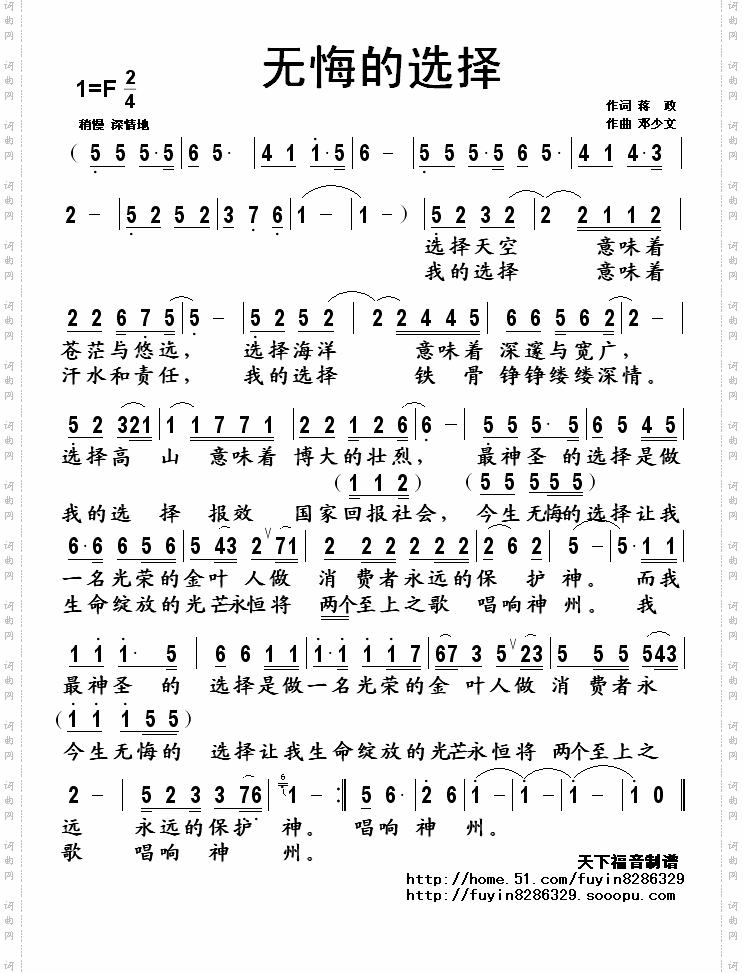 无悔的选择
1=F 2/4
作词 蒋 政
稍慢 深情地
作曲 邓少文
( 5 5 5·5 | 6 5· | 4 1 1·5 | 6 – | 5 5 5·5 6 5· | 4 1 4·3 |
2 – | 5 2 5 2 | 3 7 6 | 1 – | 1 – ) | 5 2 3 2 | 2 2 1 1 2 |
选择天空 意味着
我的选择 意味着
2 2 6 7 5 | 5 – | 5 2 5 2 | 2 2 4 4 5 | 6 6 5 6 2 | 2 – |
苍茫与悠远， 选择海洋 意味着 深邃与宽广，
汗水和责任， 我的选择 铁 骨 铮铮缕缕深情。
5 2 321 | 1 1 7 7 1 | 2 2 1 2 6 | 6 – | 5 5 5· 5 | 6 5 4 5 |
选择高 山 意味着 博大的壮烈， 最神圣 的选择是做
( 1 1 2 ) ( 5 5 5 5 5 )
我的选 择 报效 国家回报社会，今生无悔的选择让我
6·6 6 5 6 | 5 43 2 ∨71 | 2 2 2 2 2 2 | 2 6 2 | 5 – | 5· 1 1 |
一名光荣的金叶 人做 消 费者永远的保 护 神。 而我
生命绽放的光芒永恒将 两个至上之歌 唱响神 州。 我
1 1 1· 5 | 6 6 1 1 | 1·1 1 1 7 | 67 3 5∨23 | 5 5 5 543 |
最神圣 的 选择是做一名光荣的金 叶人做 消 费者永
( 1 1 1 5 5 )
今生无悔的 选择让我生命绽放的光芒永恒将 两个至上之
2 – | 5 2 3 3 76 | 6 1 – :‖ 5 6· | 2 6 | 1 – | 1 – | 1 – | 1 0 ‖
远 永远的保护 神。 唱响 神 州。
歌 唱响 神 州。
天下福音制谱
http://home.51.com/fuyin8286329
http://fuyin8286329.sooopu.com
词曲网